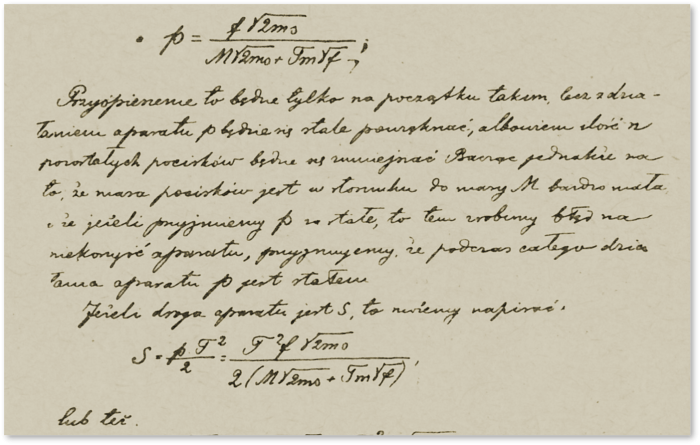 p = f√2ms / (M√2ms + Tm√f) ;
Przyśpieszenie to będzie tylko na początku takim, lecz z dzia-
łaniem aparatu p będzie się stale powiększać, albowiem ilość n
pozostałych pocisków będzie się zmniejszać Bacząc jednakże na
to, że masa pocisków jest w stosunku do masy M bardzo mała
i że jeżeli przyjmiemy p za stałe, to tem zrobimy błąd na
niekorzyść aparatu, przyjmujemy, że podczas całego dzia
łania aparatu p jest stałem
Jeżeli droga aparatu jest S, to możemy napisać:
S = p T² / 2 = T² f √2ms / 2 (M√2ms + Tm√f) ,
lub też.